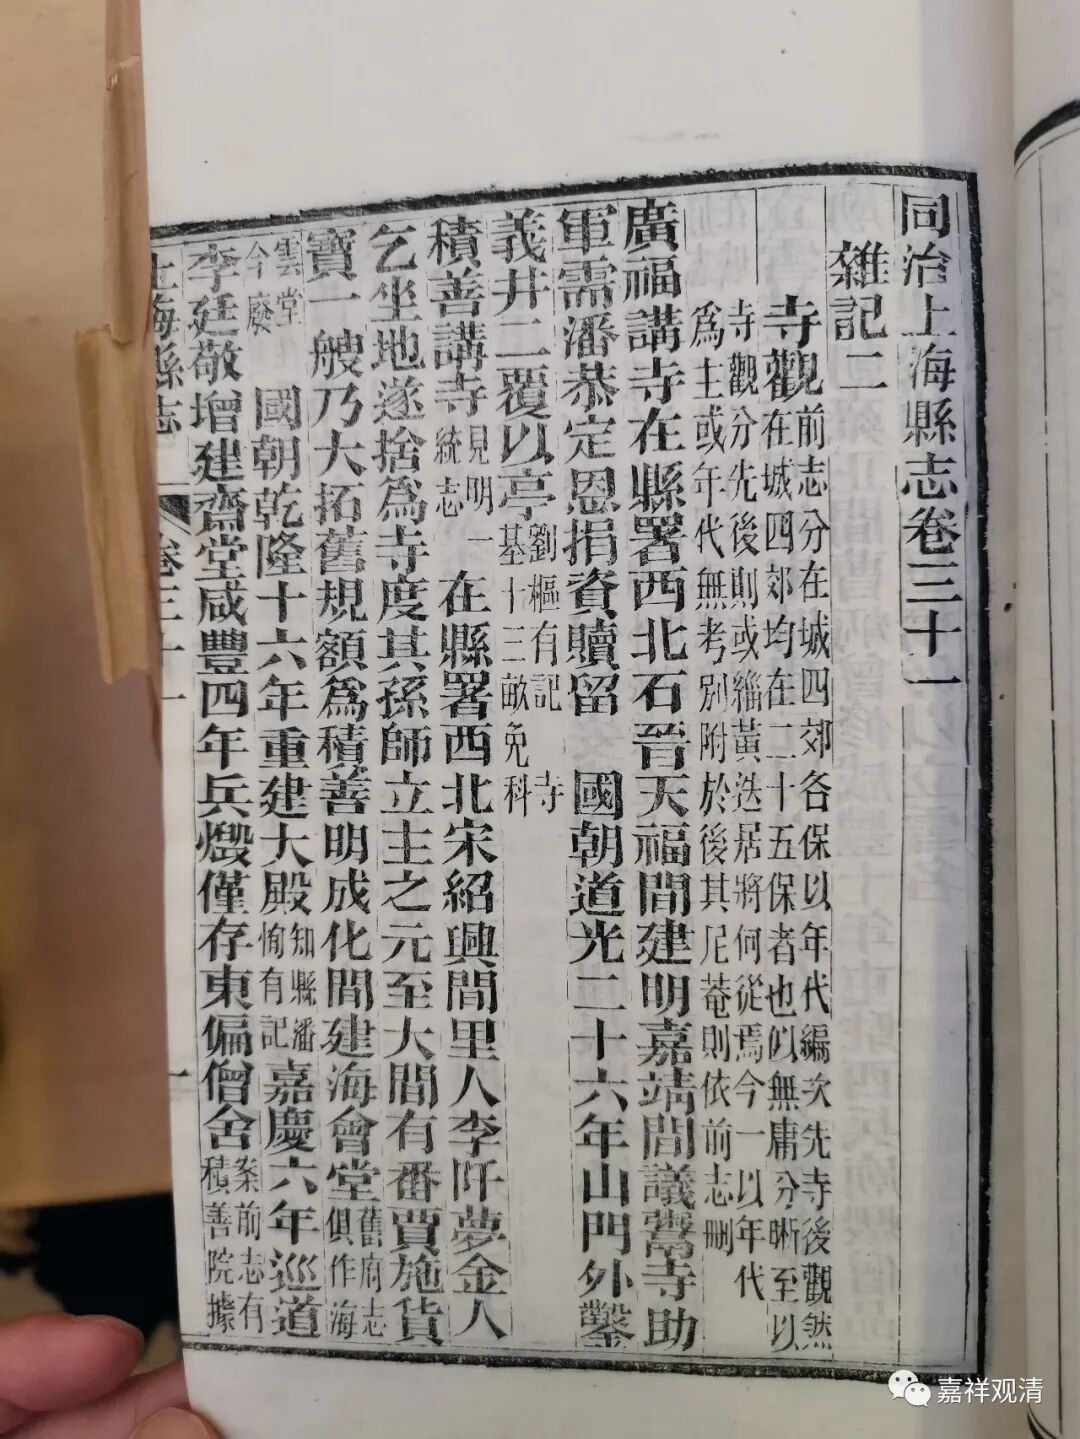 同治上海縣志卷三十一
雜記二
寺觀前志分在城四郊各保以年代編次先寺後觀然在城四郊均在二十五保者也似無庸分晰至以
寺觀分先後則或緇黃迭居將何從焉今一以年代爲主或年代無考別附於後其尼菴則依前志刪
廣福講寺在縣署西北石晉天福間建明嘉靖間議鬻寺助
軍需潘恭定恩捐資贖留 國朝道光二十六年山門外鑿
義井二覆以亭劉樞有記 寺基十三畝免科
積善講寺見明一統志 在縣署西北宋紹興間里人李阡夢金人
乞坐地遂捨爲寺度其孫師立主之元至大間有番賈施貨
寶一艘乃大拓舊規額爲積善明成化間建海會堂舊府志俱作海
雲堂今廢 國朝乾隆十六年重建大殿知縣潘恂有記嘉慶六年巡道
李廷敬增建齋堂咸豐四年兵燬僅存東偏僧舍案前志有積善院據
上海縣志 卷三十一 一
嘉祥观清